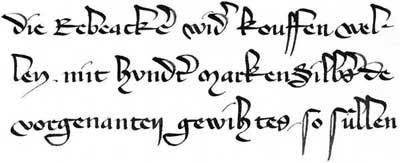 die Rebeacker wider kouffen wel-
len. mit hundert marken Silber de
vorgenanten gewihtes. so süllen